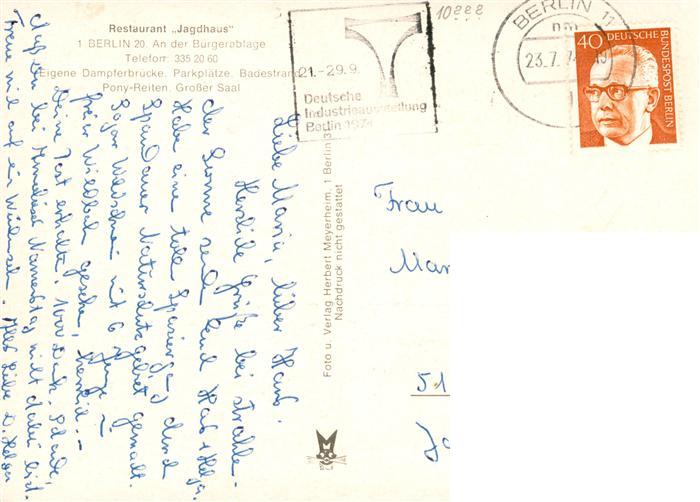 Restaurant „Jagdhaus"
1 BERLIN 20, An der Bürgerablage
Telefon: 335 20 60
Eigene Dampferbrücke, Parkplätze, Badestrand
Pony-Reiten, Großer Saal
10
21.-29.9.
Deutsche
Industrieausstellung
Berlin 1974
BERLIN 11
23.7.74
40
DEUTSCHE BUNDESPOST BERLIN
Liebe Maria, lieber Hans.
Herzliche Grüße bei strahlen-
der Sonne
Habe eine tolle Spaziergang durch
Spandauer Naturschutzgebiet gemacht.
Sogar Wildschwein mit 6 Junge
freier Wildbahn gesehen,
Deine Post erhalten. 1000 Dank. Schade,
daß Du bei Namenstag nicht dabei bist.
Freue mich auf ein Wiedersehen. Alles Liebe
Foto u. Verlag Herbert Meyerheim, 1 Berlin 3
Nachdruck nicht gestattet
Frau
Mar
51